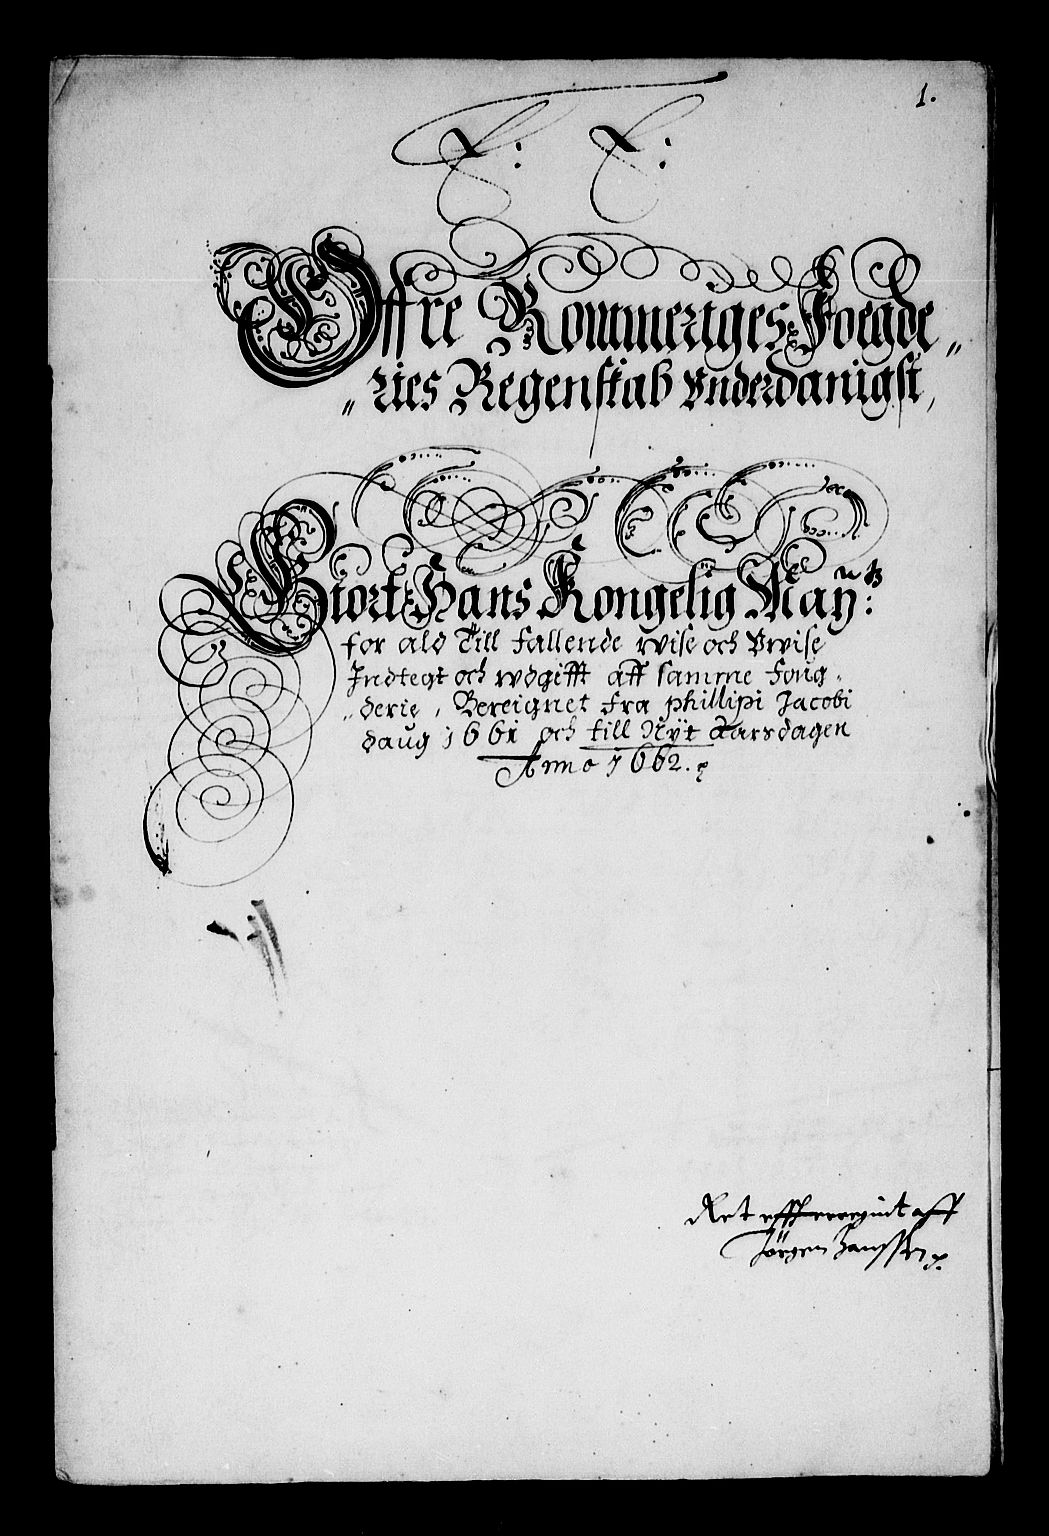 1.
Offre Rommeriges Foegde„
„ries Regenskab Vnderdanigst,
Giort Hans Kongelig May:tz
for ald Till fallende wise och Vwise
Indtegt och wdgifft aff samme Foug„
„derie, Bereignet fra phillipi Jacobi
daug 1661 och till Nÿt Aarsdagen
Anno 1662.
Ret aff
Jörgen Hanssen